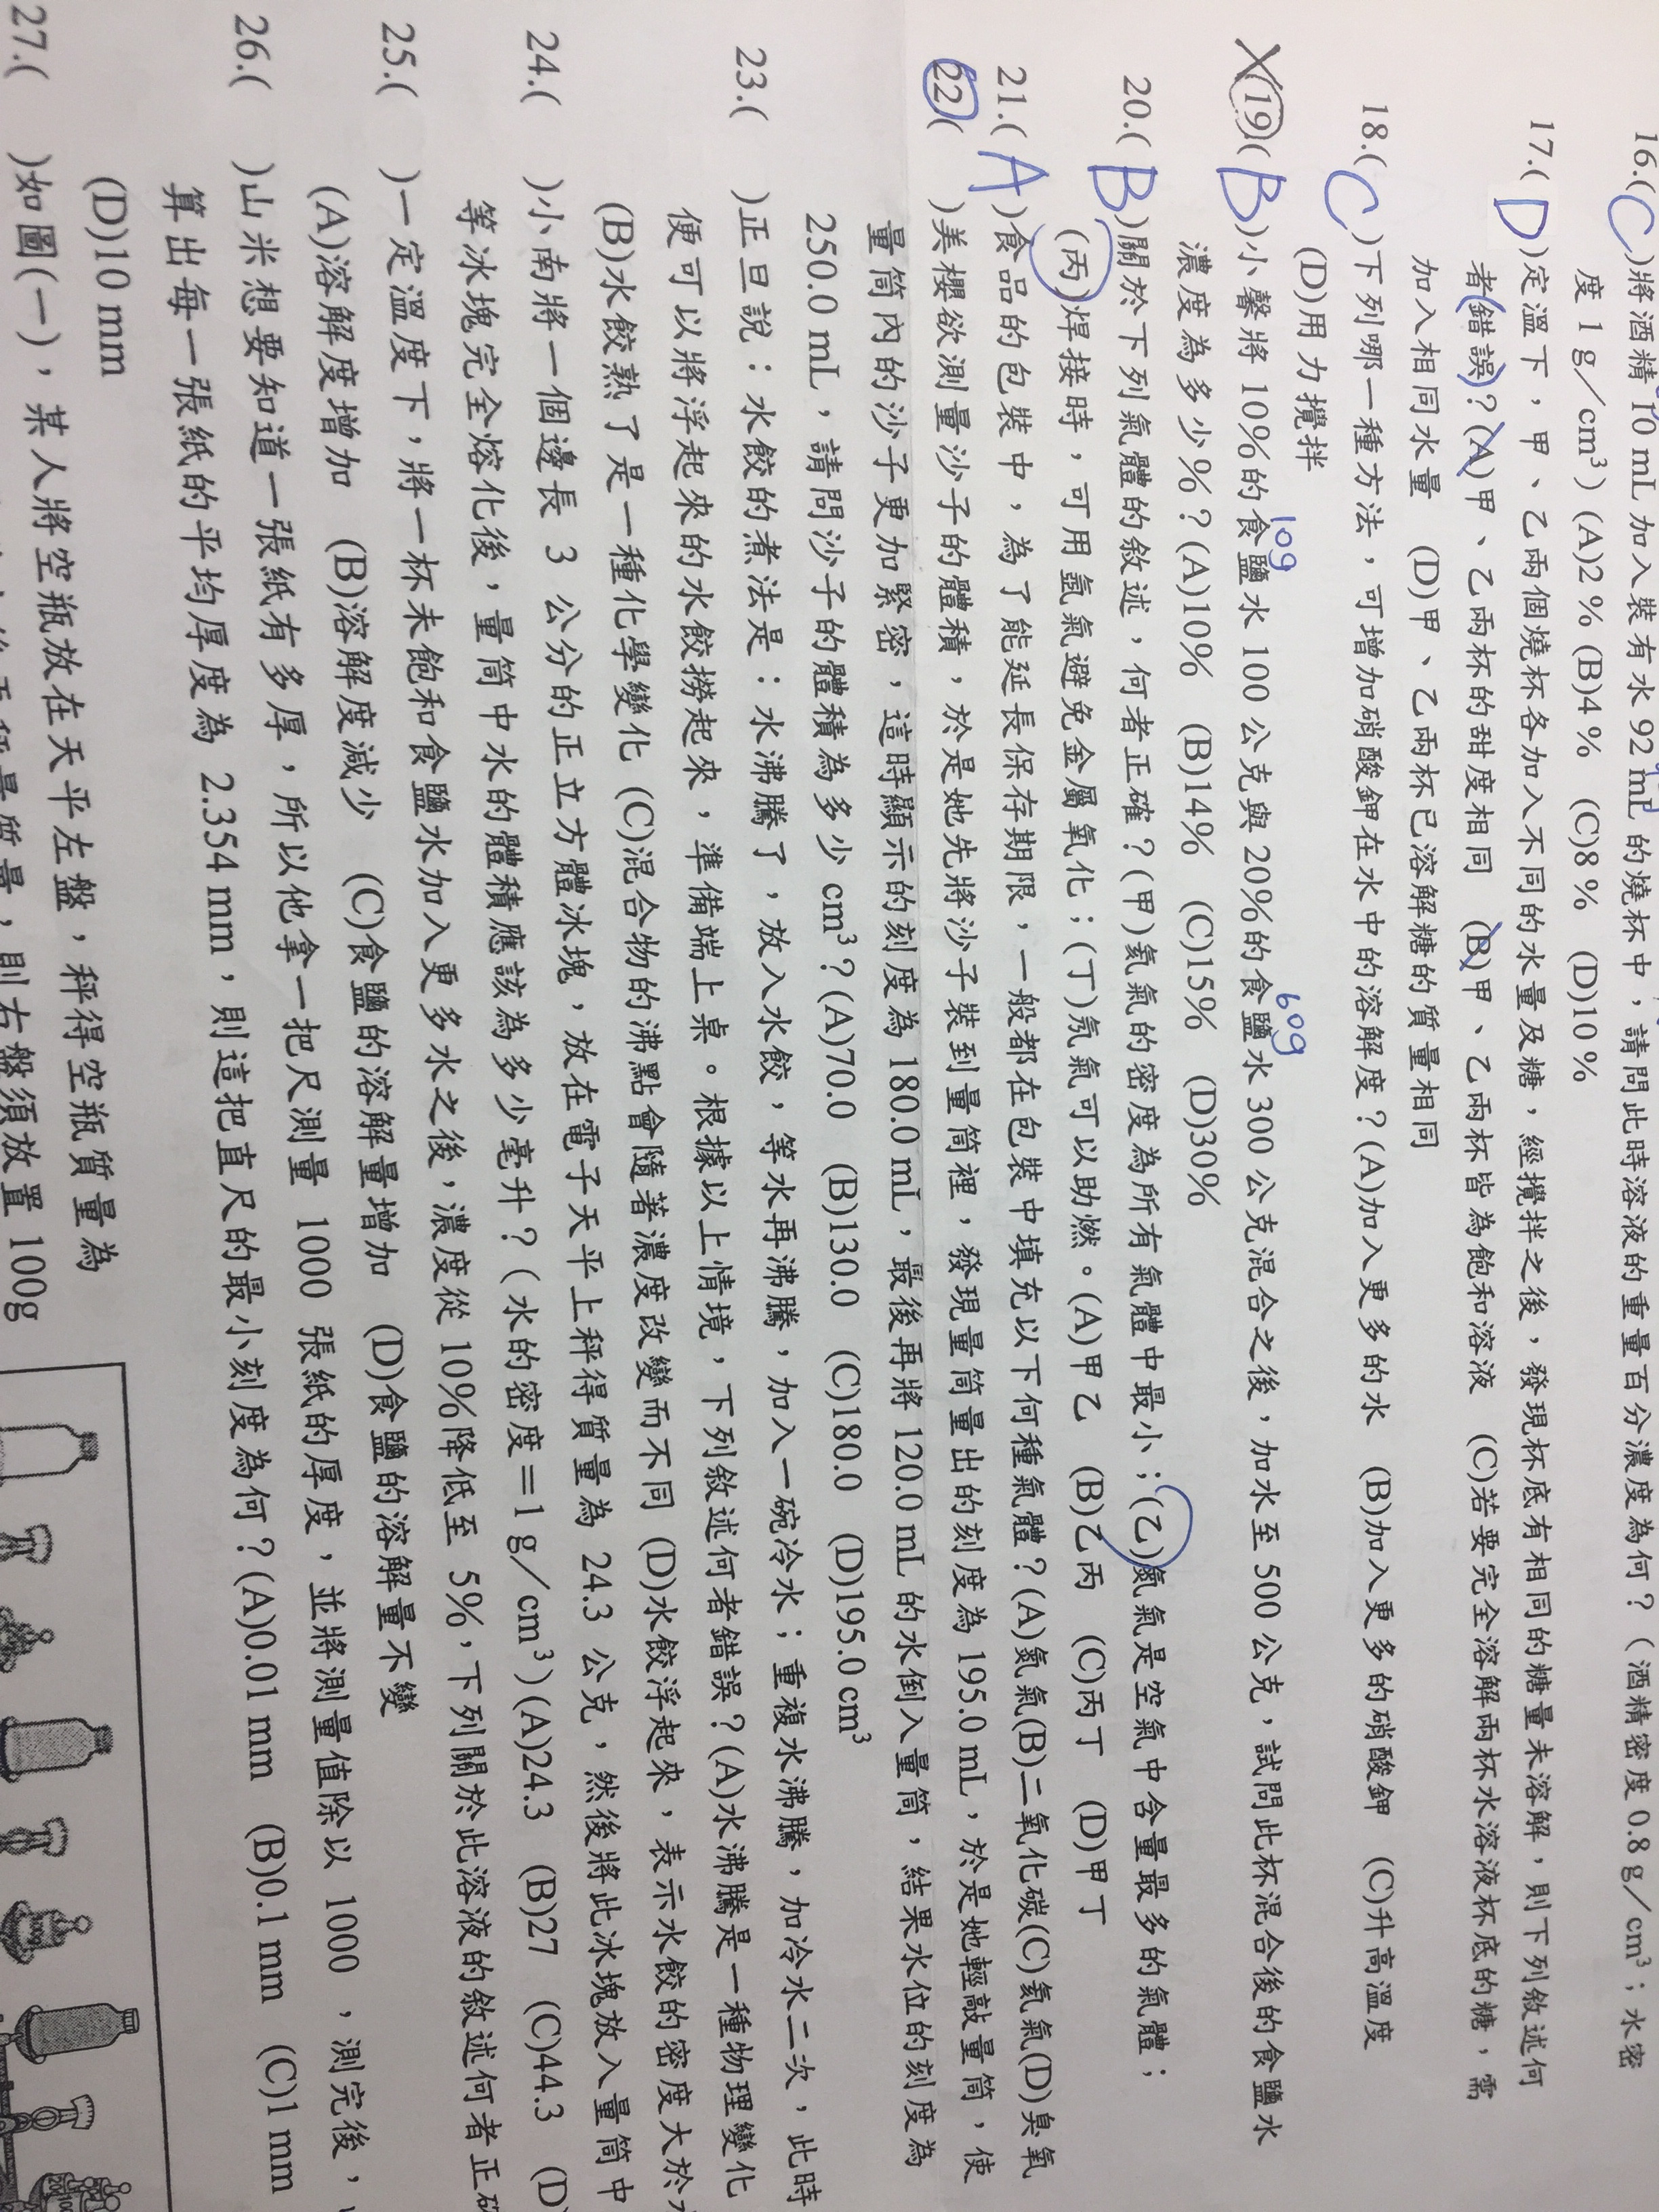 16.(C)將酒精10 mL加入裝有水92 mL的燒杯中，請問此時溶液的重量百分濃度為何？（酒精密度0.8 g／cm³；水密
度1 g／cm³）(A)2％ (B)4％ (C)8％ (D)10％
17.(D)定溫下，甲、乙兩個燒杯各加入不同的水量及糖，經攪拌之後，發現杯底有相同的糖量未溶解，則下列敘述何
者錯誤？(A)甲、乙兩杯的甜度相同 (B)甲、乙兩杯皆為飽和溶液 (C)若要完全溶解兩杯水溶液杯底的糖，需
加入相同水量 (D)甲、乙兩杯已溶解糖的質量相同
18.(C)下列哪一種方法，可增加硝酸鉀在水中的溶解度？(A)加入更多的水 (B)加入更多的硝酸鉀 (C)升高溫度
(D)用力攪拌
10g 60g
X 19(B)小馨將10%的食鹽水100公克與20%的食鹽水300公克混合之後，加水至500公克，試問此杯混合後的食鹽水
濃度為多少%？(A)10% (B)14% (C)15% (D)30%
20.(B)關於下列氣體的敘述，何者正確？(甲)氦氣的密度為所有氣體中最小；(乙)氮氣是空氣中含量最多的氣體；
(丙)焊接時，可用氬氣避免金屬氧化；(丁)氖氣可以助燃。(A)甲乙 (B)乙丙 (C)丙丁 (D)甲丁
21.(A)食品的包裝中，為了能延長保存期限，一般都在包裝中填充以下何種氣體？(A)氮氣(B)二氧化碳(C)氦氣(D)臭氧
22( )美櫻欲測量沙子的體積，於是她先將沙子裝到量筒裡，發現量筒量出的刻度為195.0 mL，於是她輕敲量筒，使
量筒內的沙子更加緊密，這時顯示的刻度為180.0 mL，最後再將120.0 mL的水倒入量筒，結果水位的刻度為
250.0 mL，請問沙子的體積為多少cm³？(A)70.0 (B)130.0 (C)180.0 (D)195.0 cm³
23.( )正旦說：水餃的煮法是：水沸騰了，放入水餃，等水再沸騰，加入一碗冷水；重複水沸騰，加冷水二次，此時
便可以將浮起來的水餃撈起來，準備端上桌。根據以上情境，下列敘述何者錯誤？(A)水沸騰是一種物理變化
(B)水餃熟了是一種化學變化 (C)混合物的沸點會隨著濃度改變而不同 (D)水餃浮起來，表示水餃的密度大於
24.( )小南將一個邊長3公分的正立方體冰塊，放在電子天平上秤得質量為24.3公克，然後將此冰塊放入量筒中
等冰塊完全熔化後，量筒中水的體積應該為多少毫升？（水的密度＝1 g／cm³）(A)24.3 (B)27 (C)44.3 (D)
25.( )一定溫度下，將一杯未飽和食鹽水加入更多水之後，濃度從10%降低至5%，下列關於此溶液的敘述何者正
(A)溶解度增加 (B)溶解度減少 (C)食鹽的溶解量增加 (D)食鹽的溶解量不變
26.( )山米想要知道一張紙有多厚，所以他拿一把尺測量1000張紙的厚度，並將測量值除以1000，測完後，
算出每一張紙的平均厚度為2.354 mm，則這把直尺的最小刻度為何？(A)0.01 mm (B)0.1 mm (C)1 mm
(D)10 mm
27.( )如圖(一)，某人將空瓶放在天平左盤，秤得空瓶質量為
質量，則右盤須放置100g